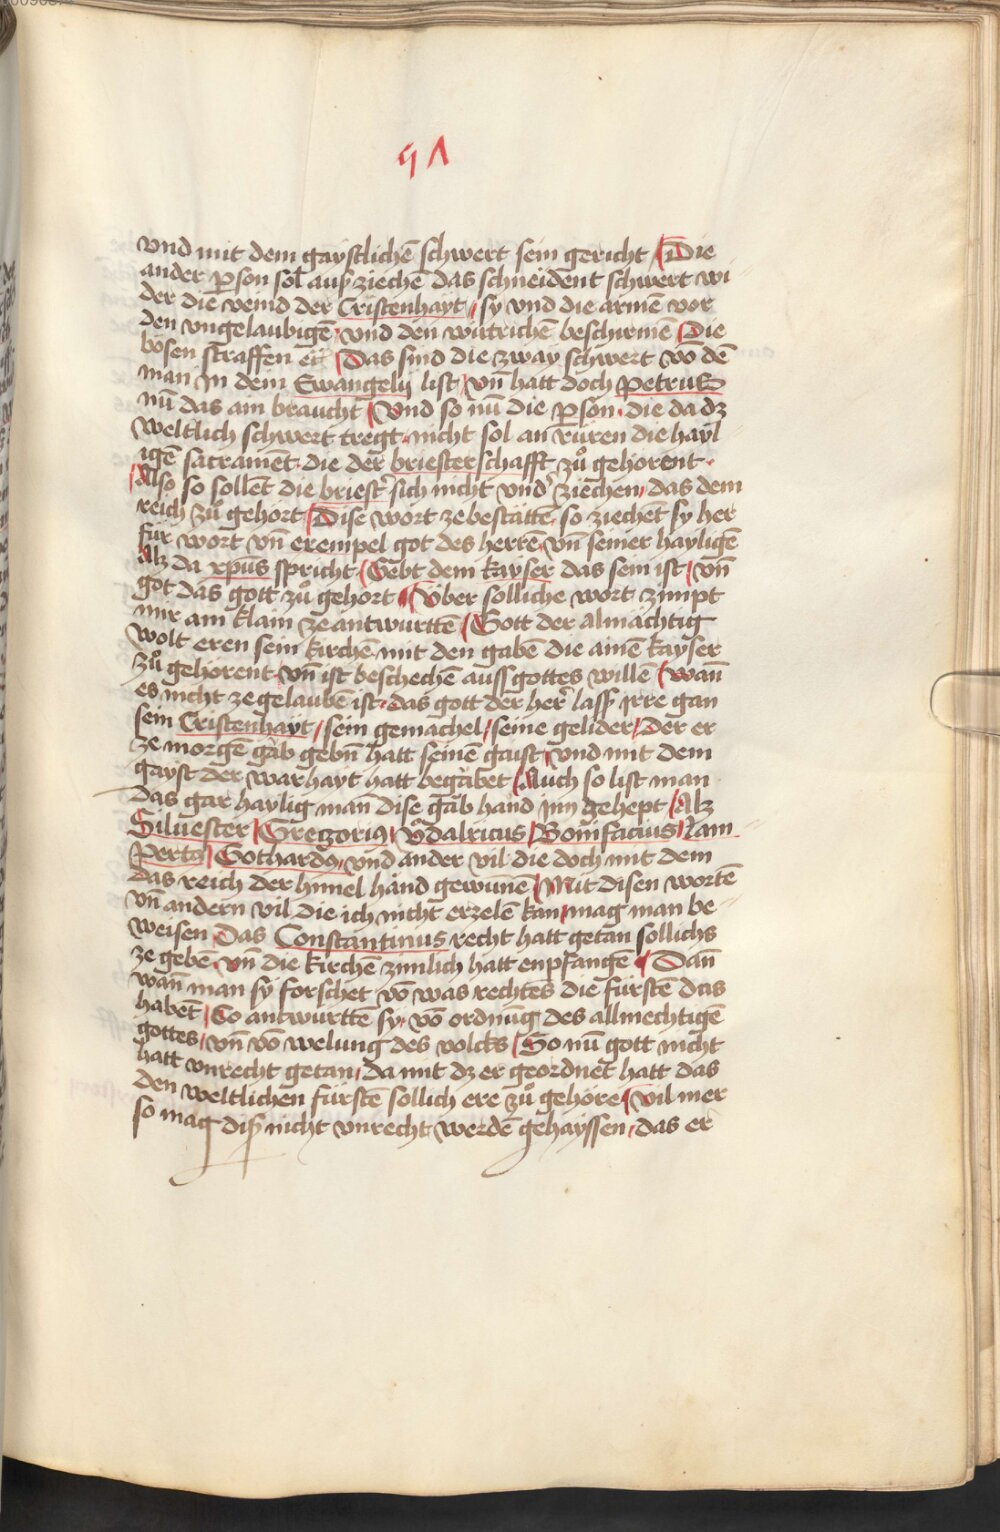 9Λ
vnd mit dem gaystlichē schwert sein gericht Die
ander p̄son sol auß ziechē das schneident schwert wi
der die veind der Cristenhayt / sy vnd die armē vor
den vngelaubigē / vnd den wüttrichē beschirmē Die
bösen straffen etc̄ Das sind die zway schwert vō dē
man jn dem Ewangelij list / vn̄ hatt doch Petrus
nū das ain braucht Vnd so nū die p̄son die da dz
weltlich schwert tregt nicht sol an rüren die hayl
igē sacramēt die der briesterschafft zů gehörent
Also so sollēt die briest̕ sich nicht vnd̕ziechen / das dem
reich zů gehört Dise wort ze bestättē so ziechet sy her
für wort vn̄ exempel got des herrē vn̄ seiner hayligē
Alz da xpūs spricht Gebt dem kayser das sein ist / vn̄
got das gott zů gehört Über solliche wort zimpt
mir ain klain ze antwurttē Gott der almächtig
wolt eren sein kirchē mit den gabē die ainē kayser
zů gehörent vn̄ ist beschechē auss gottes willē wan̄
es nicht ze gelaubē ist das gott der her̄ lass jrre gan
sein Cristenhayt / sein gemächel / seine gelider / Der er
ze morgē gab gebn̄ hatt seinē gaist / vnd mit dem
gayst der warhayt hatt begäbet Auch so list man
Das gar haylig man dise gab hand jnn gehept Alz
Siluester Gregorius Vͦdalricus Bonifacius Lam
perts Gothardus / vnd ander vil die doch mit dem
das reich der himel hand gewūnē Mit disen wortē
vn̄ andern vil die ich nicht erzelē kan / mag man be
weisen Das Constantinus recht hatt getan sollichs
ze gebē vn̄ die kirchē zimlich hatt enpfangē Dan̄
wan̄ man sy forschet vō was rechtes die fürstē das
habēt So antwurttē sy vō ordnūg des allmechtigē
gottes / vn̄ vō welung des volcks So nū gott nicht
hatt vnrecht getan / da mit dz er geordnet hatt das
den weltlichen fürstē sollich ere zů gehöre vil mer
so mag diß nicht vnrecht werdē gehayssen / das er